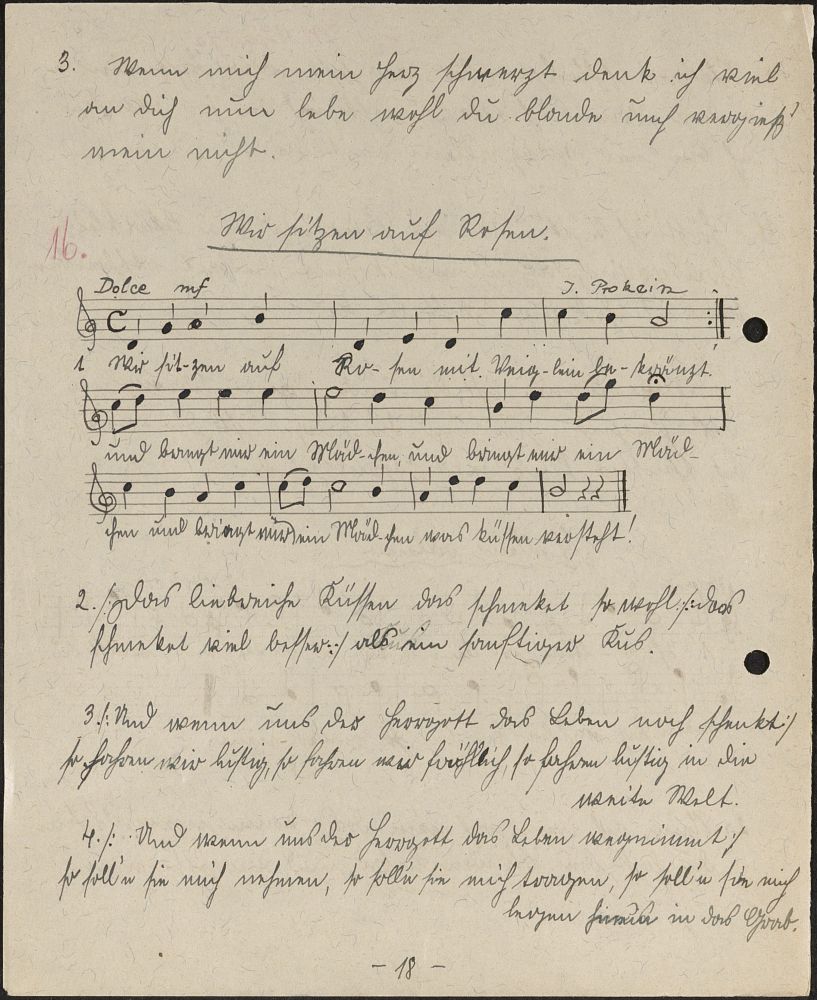 3. Wenn mich mein Herz schmerzt denk ich viel
an dich nun lebe wohl du blonde und vergieß'
mein nicht.
16. Wir sitzen auf Rosen.
Dolce mf J. Prokein
1 Wir sit-zen auf Ro-sen mit Veig-lein be-kränzt.
und bringt mir ein Mäd-chen, und bringt mir ein Mäd-
chen und bringt mir ein Mäd-chen was küssen versteht!
2. /: Das liebreiche Küssen das schmeket so wohl :/: das
schmeket viel besser :/ als ein sanftiger Kus.
3. /: Und wenn uns der Herrgott das Leben noch schenkt :/
so fahren wir lustig, so fahren wir fröhlich, so fahren lustig in die
weite Welt.
4. /: Und wenn uns der Herrgott das Leben wegnimmt :/
so soll'n sie mich nehmen, so soll'n sie mich tragen, so soll'n sie mich
legen hinein in das Grab.
- 18 -